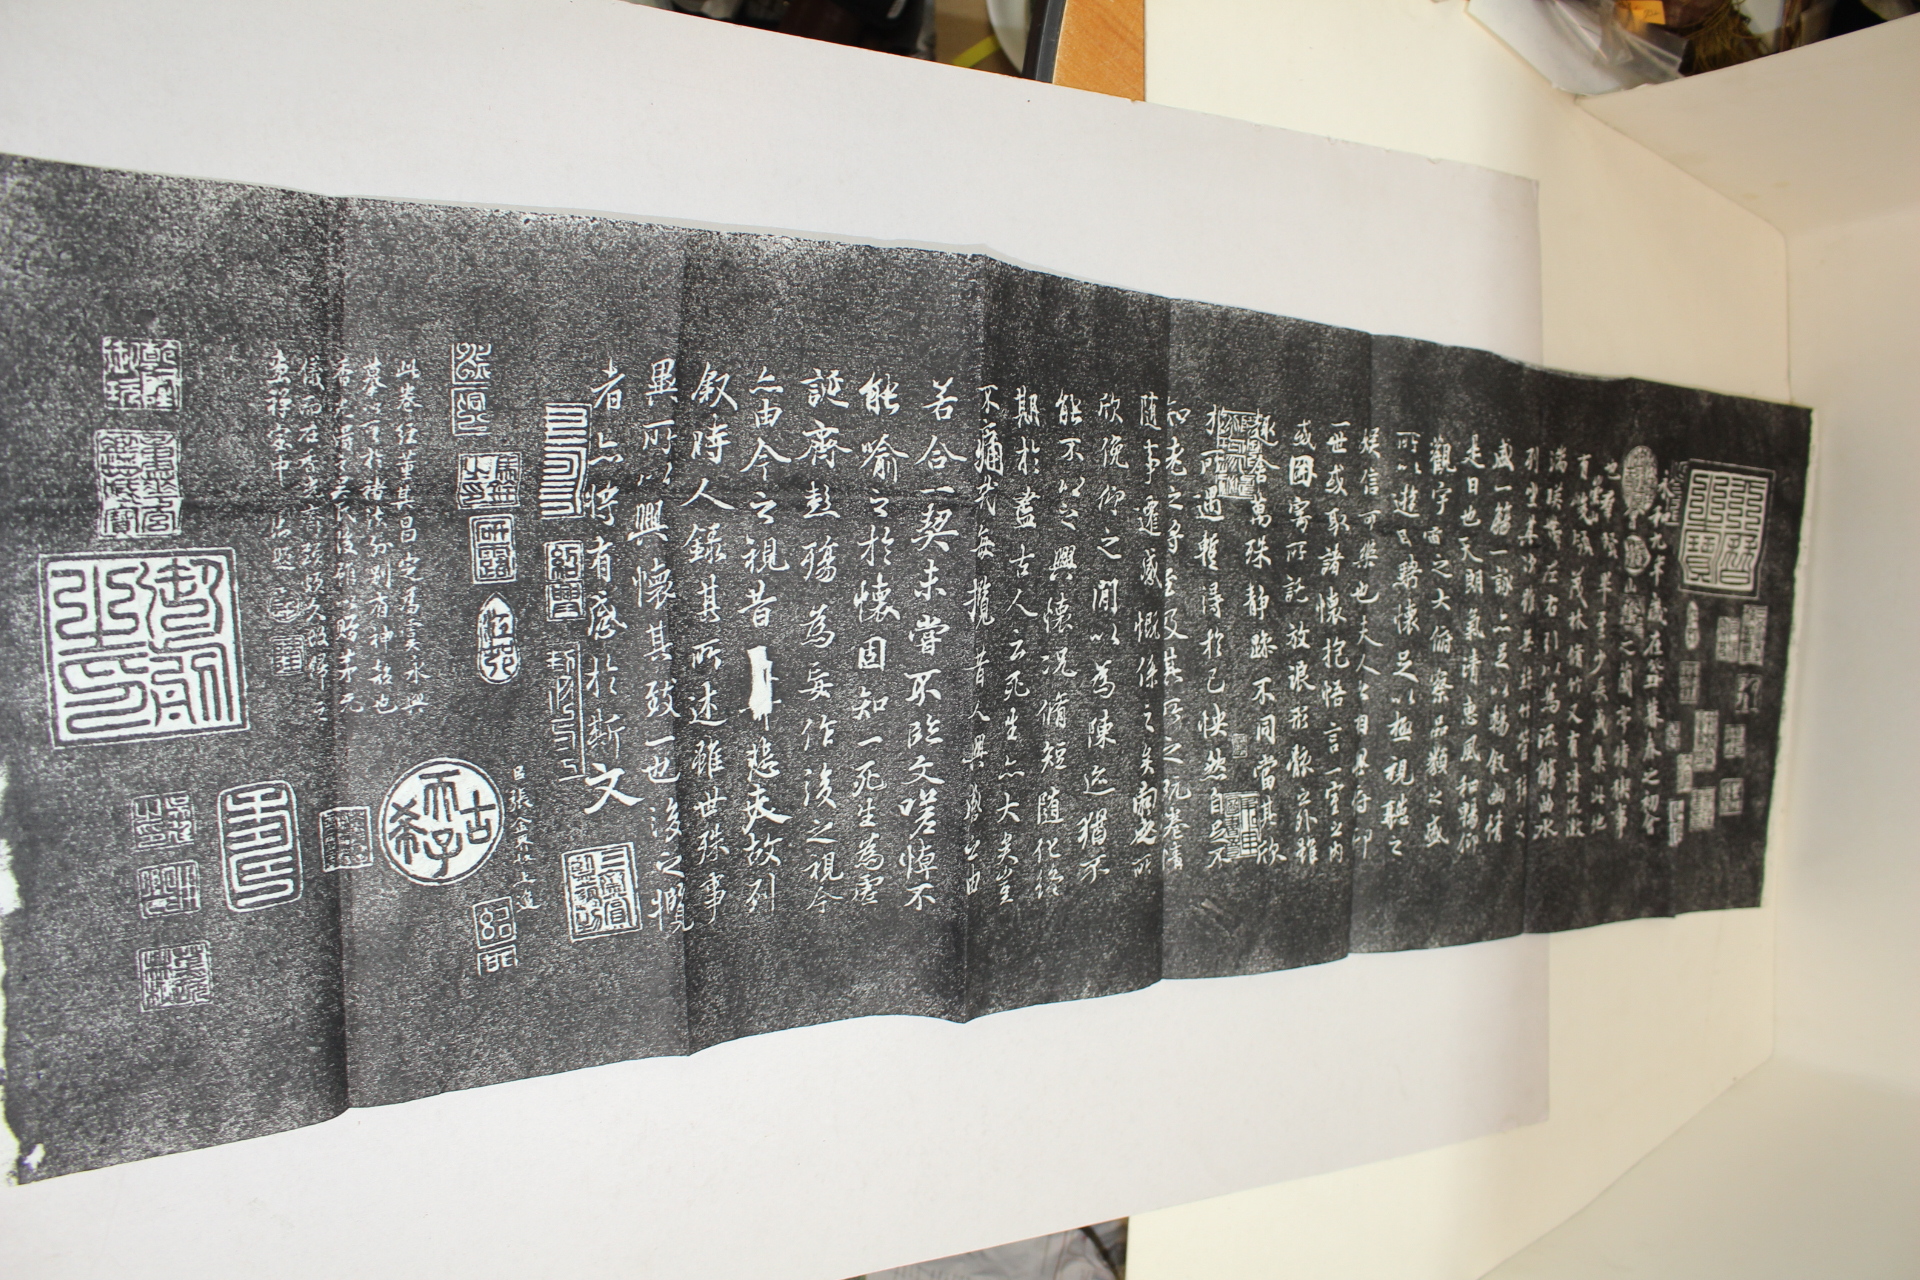 永和九年歲在癸丑暮春之初會
山陰之蘭亭脩稧事
也羣賢畢至少長咸集此地
有崇山峻領茂林脩竹又有清流激
湍暎帶左右引以為流觴曲水
列坐其次雖無絲竹管弦之
盛一觴一詠亦足以暢敘幽情
是日也天朗氣清惠風和暢仰
觀宇宙之大俯察品類之盛
所以遊目騁懷足以極視聽之
娛信可樂也夫人之相與俯仰
一世或取諸懷抱悟言一室之內
或因寄所託放浪形骸之外雖
趣舍萬殊靜躁不同當其欣
於所遇暫得於己怏然自足不
知老之將至及其所之既惓情
隨事遷感慨係之矣向之所
欣俛仰之閒以為陳迹猶不
能不以之興懷況脩短隨化終
期於盡古人云死生亦大矣豈
不痛哉每攬昔人興感之由
若合一契未嘗不臨文嗟悼不
能喻之於懷固知一死生為虛
誕齊彭殤為妄作後之視今
亦由今之視昔悲夫故列
敘時人錄其所述雖世殊事
異所以興懷其致一也後之攬
者亦將有感於斯文
臣張金界奴上進
此卷經董其昌定為虞永興
摹以其於褚法外別有神韻也
香光得之吳氏後雖以贈茅元
儀而在香光齋頭頗久故歸之
畫禪室中御題
古稀天子
乾隆御玩